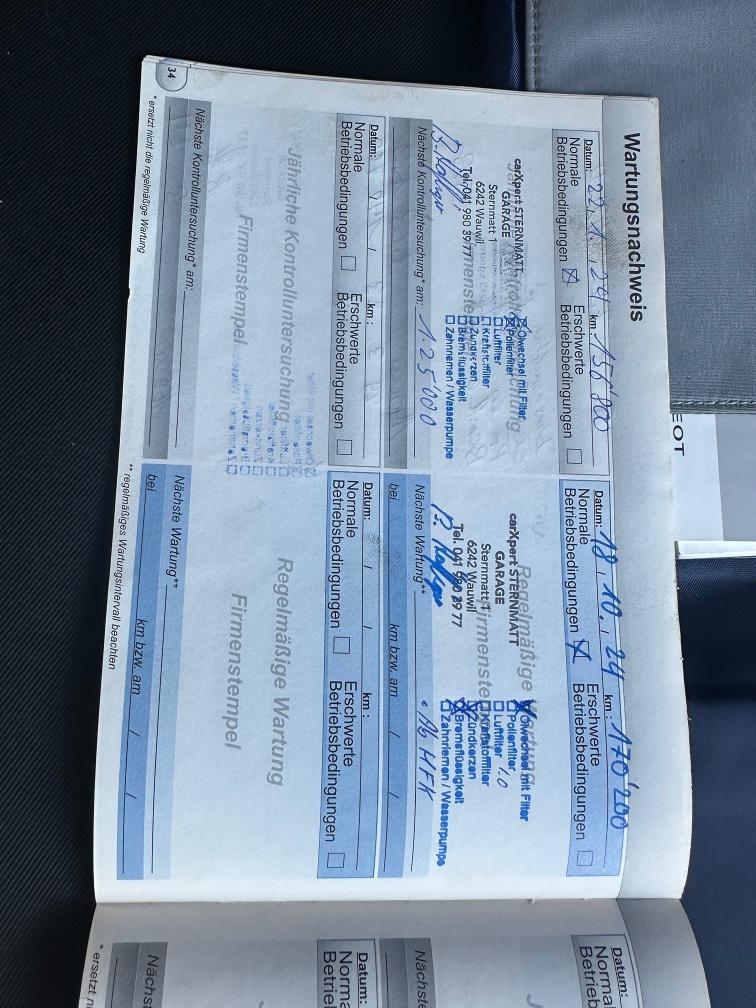 Wartungsnachweis
Datum: 22. 1. 24 km: 156'800
Normale Betriebsbedingungen ☒ Erschwerte Betriebsbedingungen ☐
carXpert STERNMATT
GARAGE
Sternmatt 1
6242 Wauwil
Tel. 041 980 39 77
☒ Ölwechsel mit Filter
☒ Pollenfilter
☐ Luftfilter
☐ Kraftstoffilter
☐ Zündkerzen
☐ Bremsflüssigkeit
☐ Zahnriemen / Wasserpumpe
Nächste Kontrolluntersuchung* am: 1.25'000
Datum: 18. 10. 24 km: 170'200
Normale Betriebsbedingungen ☒ Erschwerte Betriebsbedingungen ☐
Regelmäßige Wartung
carXpert STERNMATT
GARAGE
Sternmatt 1
6242 Wauwil
Tel. 041 980 39 77
☒ Ölwechsel mit Filter
☐ Pollenfilter
☐ Luftfilter
☐ Kraftstoffilter
☐ Zündkerzen
☒ Bremsflüssigkeit
☐ Zahnriemen / Wasserpumpe
Nächste Wartung**
bei km bzw. am / /
Datum: / / km:
Normale Betriebsbedingungen ☐ Erschwerte Betriebsbedingungen ☐
Jährliche Kontrolluntersuchung
Firmenstempel
Nächste Kontrolluntersuchung* am:
Datum: / / km:
Normale Betriebsbedingungen ☐ Erschwerte Betriebsbedingungen ☐
Regelmäßige Wartung
Firmenstempel
Nächste Wartung**
bei km bzw. am / /
* ersetzt nicht die regelmäßige Wartung
** regelmäßiges Wartungsintervall beachten
34
EOT
Datum:
Norma
Betrieb
Nächst
Datum:
Norma
Betrieb
Nächst
* ersetzt ni